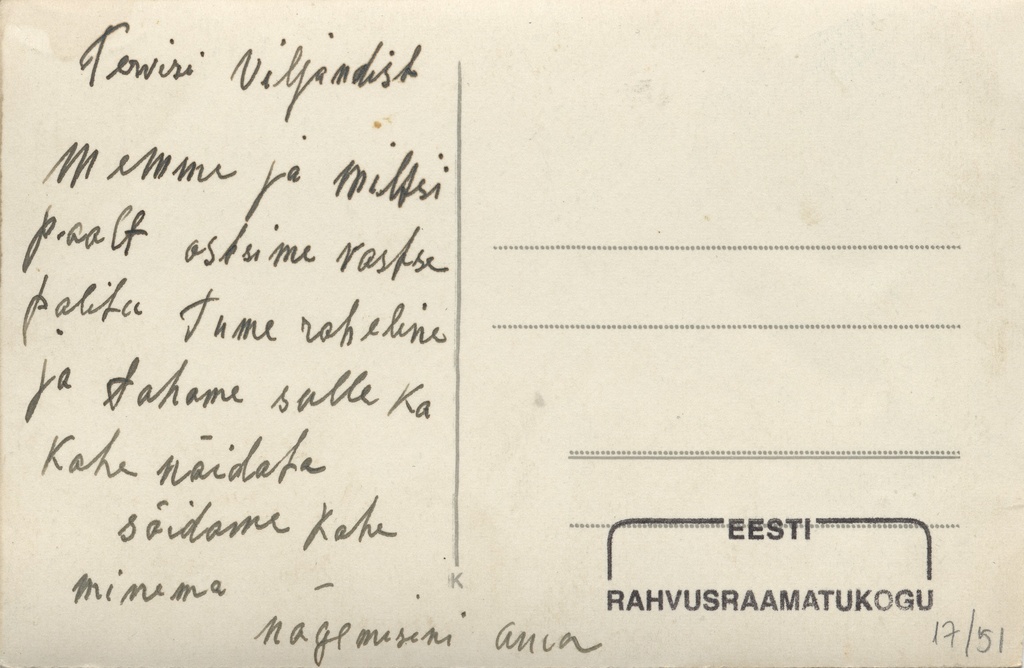 Tervisi Viljandist
Memme ja miltsi
paalt ostsime vastse
palitu Tume roheline
ja tahame sulle ka
Kohe näidata
sõidame Kohe
minema –
nägemiseni
K
EESTI
RAHVUSRAAMATUKOGU
17/51